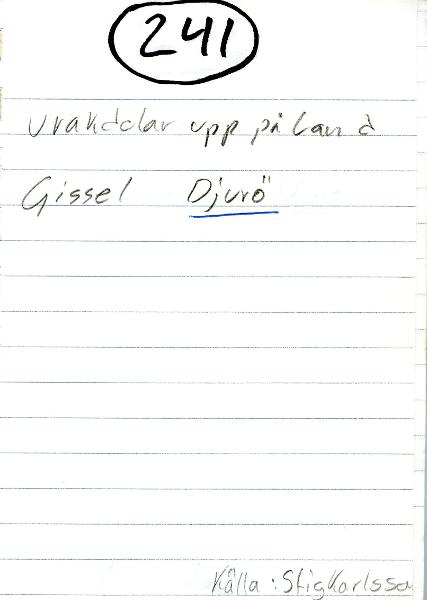 241
Vrakdelar upp på land
Gissel Djurö
Källa : Stig Karlsson